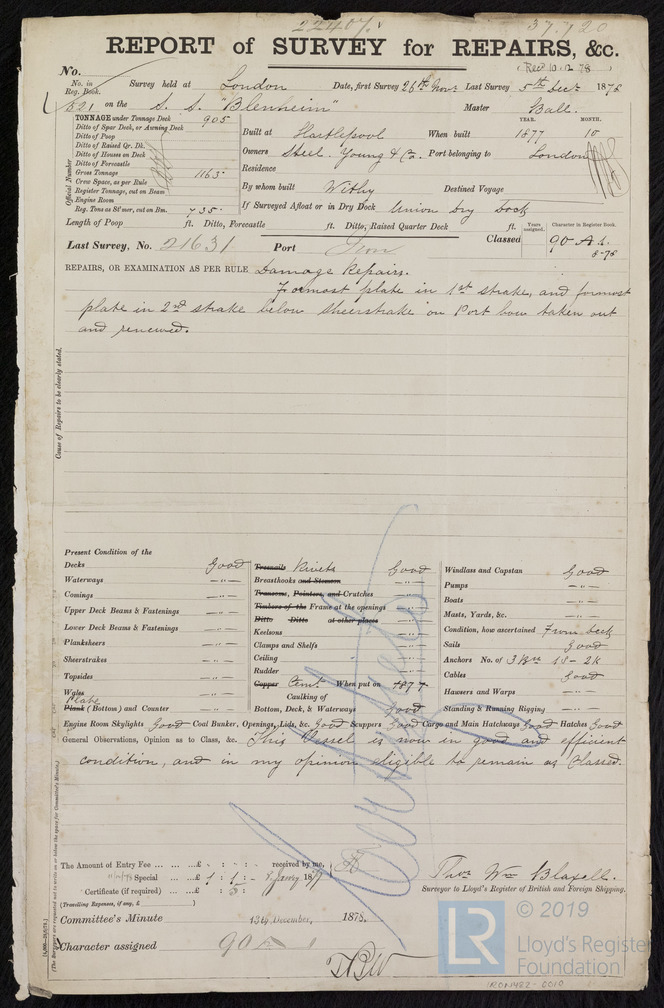 22407
37,720
REPORT of SURVEY for REPAIRS, &c.
(Rec 10.12.78)
No.
No. in Reg. Book. Survey held at London Date, first Survey 26th Novr Last Survey 5th Decr 1878
521 on the S. S. "Blenheim" Master Ball.
TONNAGE under Tonnage Deck 905
Ditto of Spar Deck, or Awning Deck
Ditto of Poop
Ditto of Raised Qr. Dk.
Ditto of Houses on Deck
Ditto of Forecastle
Gross Tonnage 1163
Crew Space, as per Rule
Register Tonnage, cut on Beam
Engine Room
Reg. Tons as St'mer, cut on Bm. 735
Official Number
YEAR. MONTH.
Built at Hartlepool When built 1877 10
Owners Steel, Young & Co. Port belonging to London
Residence
By whom built Withy Destined Voyage
If Surveyed Afloat or in Dry Dock Union Dry Dock
Length of Poop ft. Ditto, Forecastle ft. Ditto, Raised Quarter Deck ft.
Years assigned. Character in Register Book.
Last Survey, No. 21631 Port Lon Classed 90 A1.
8-78
REPAIRS, OR EXAMINATION AS PER RULE Damage Repairs.
Formost plate in 1st strake, and formost
plate in 2nd strake below sheerstrake on Port bow taken out
and renewed.
Cause of Repairs to be clearly stated.
Present Condition of the
Decks Good
Waterways —"—
Comings —"—
Upper Deck Beams & Fastenings —"—
Lower Deck Beams & Fastenings —"—
Planksheers —"—
Sheerstrakes —"—
Topsides —"—
Wales —"—
Plate
Plank (Bottom) and Counter —"—
Treenails Rivets Good
Breasthooks and Stemson —"—
Transoms, Pointers, and Crutches —"—
Timbers of the Frame at the openings —"—
Ditto Ditto at other places —"—
Keelsons —"—
Clamps and Shelfs —"—
Ceiling —"—
Rudder —"—
Copper Cemt. When put on 1877
Caulking of
Bottom, Deck, & Waterways Good
Windlass and Capstan Good
Pumps —"—
Boats —"—
Masts, Yards, &c. —"—
Condition, how ascertained From deck
Sails Good
Anchors No. of 3 Brs 1S - 2K
Cables Good
Hawsers and Warps —"—
Standing & Running Rigging —"—
Engine Room Skylights Good Coal Bunker, Openings, Lids, &c. Good Scuppers Good Cargo and Main Hatchways Good Hatches Good
General Observations, Opinion as to Class, &c. This Vessel is now in good and efficient
condition, and in my opinion eligible to remain as Classed.
(The Surveyors are requested not to write on or below the space for Committee's Minute.)
The Amount of Entry Fee ... ... ...£ : : received by me,
Special ... £ 1 : 1 :
Certificate (if required) ... £ : 5 :
(Travelling Expenses, if any, £ )
Thos Wm Blaxell.
Surveyor to Lloyd's Register of British and Foreign Shipping.
Committee's Minute 13th December, 1878.
Character assigned 90 A 1
LR © 2019
Lloyd's Register
Foundation
IRON482-0010